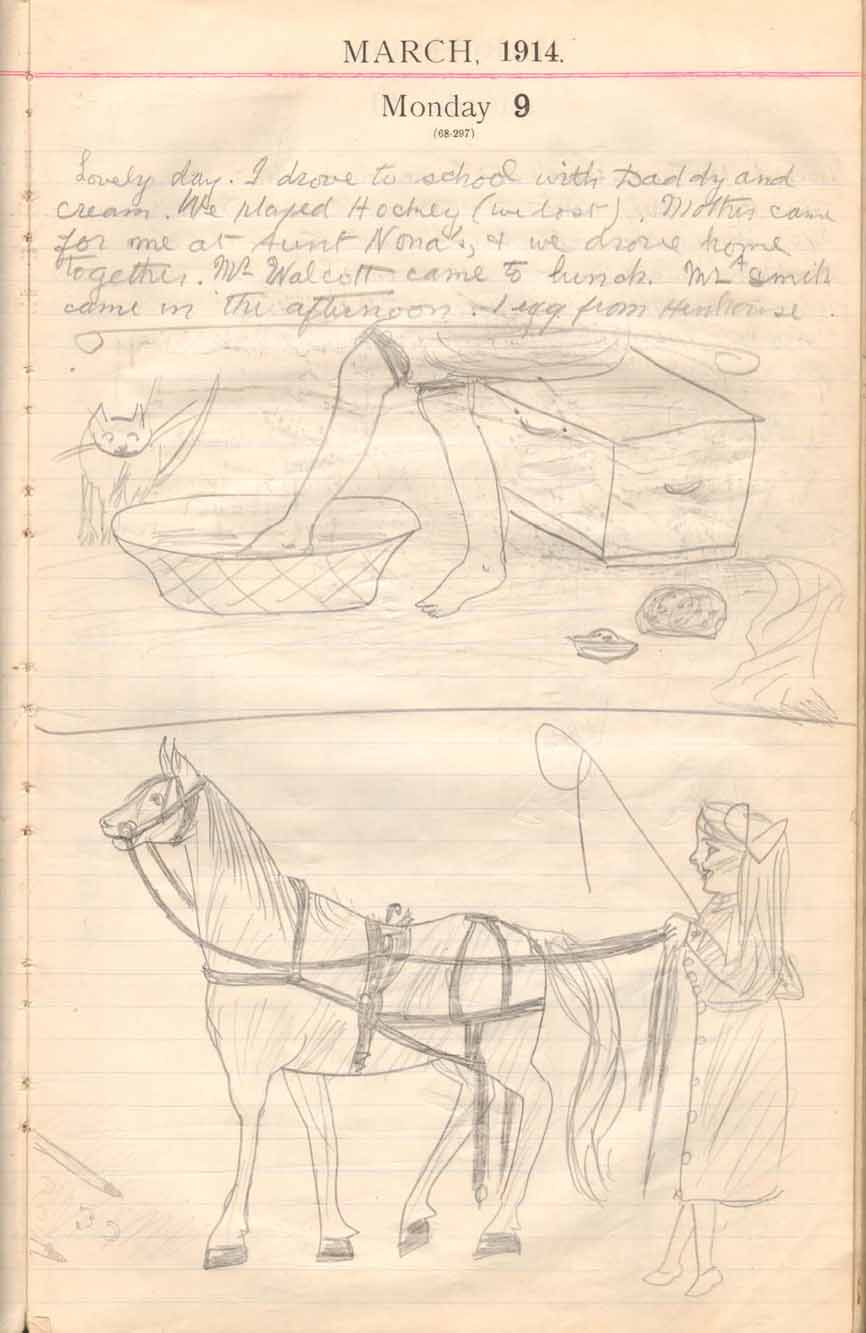 MARCH, 1914.
Monday 9
(68-297)
Lovely day. I drove to school with Daddy and
cream. We played Hockey (we lost). Mother came
for me at Aunt Nona's, & we drove home
together. Mr Walcott came to lunch. Mr Smith
came in the afternoon. 1 egg from Henhouse.